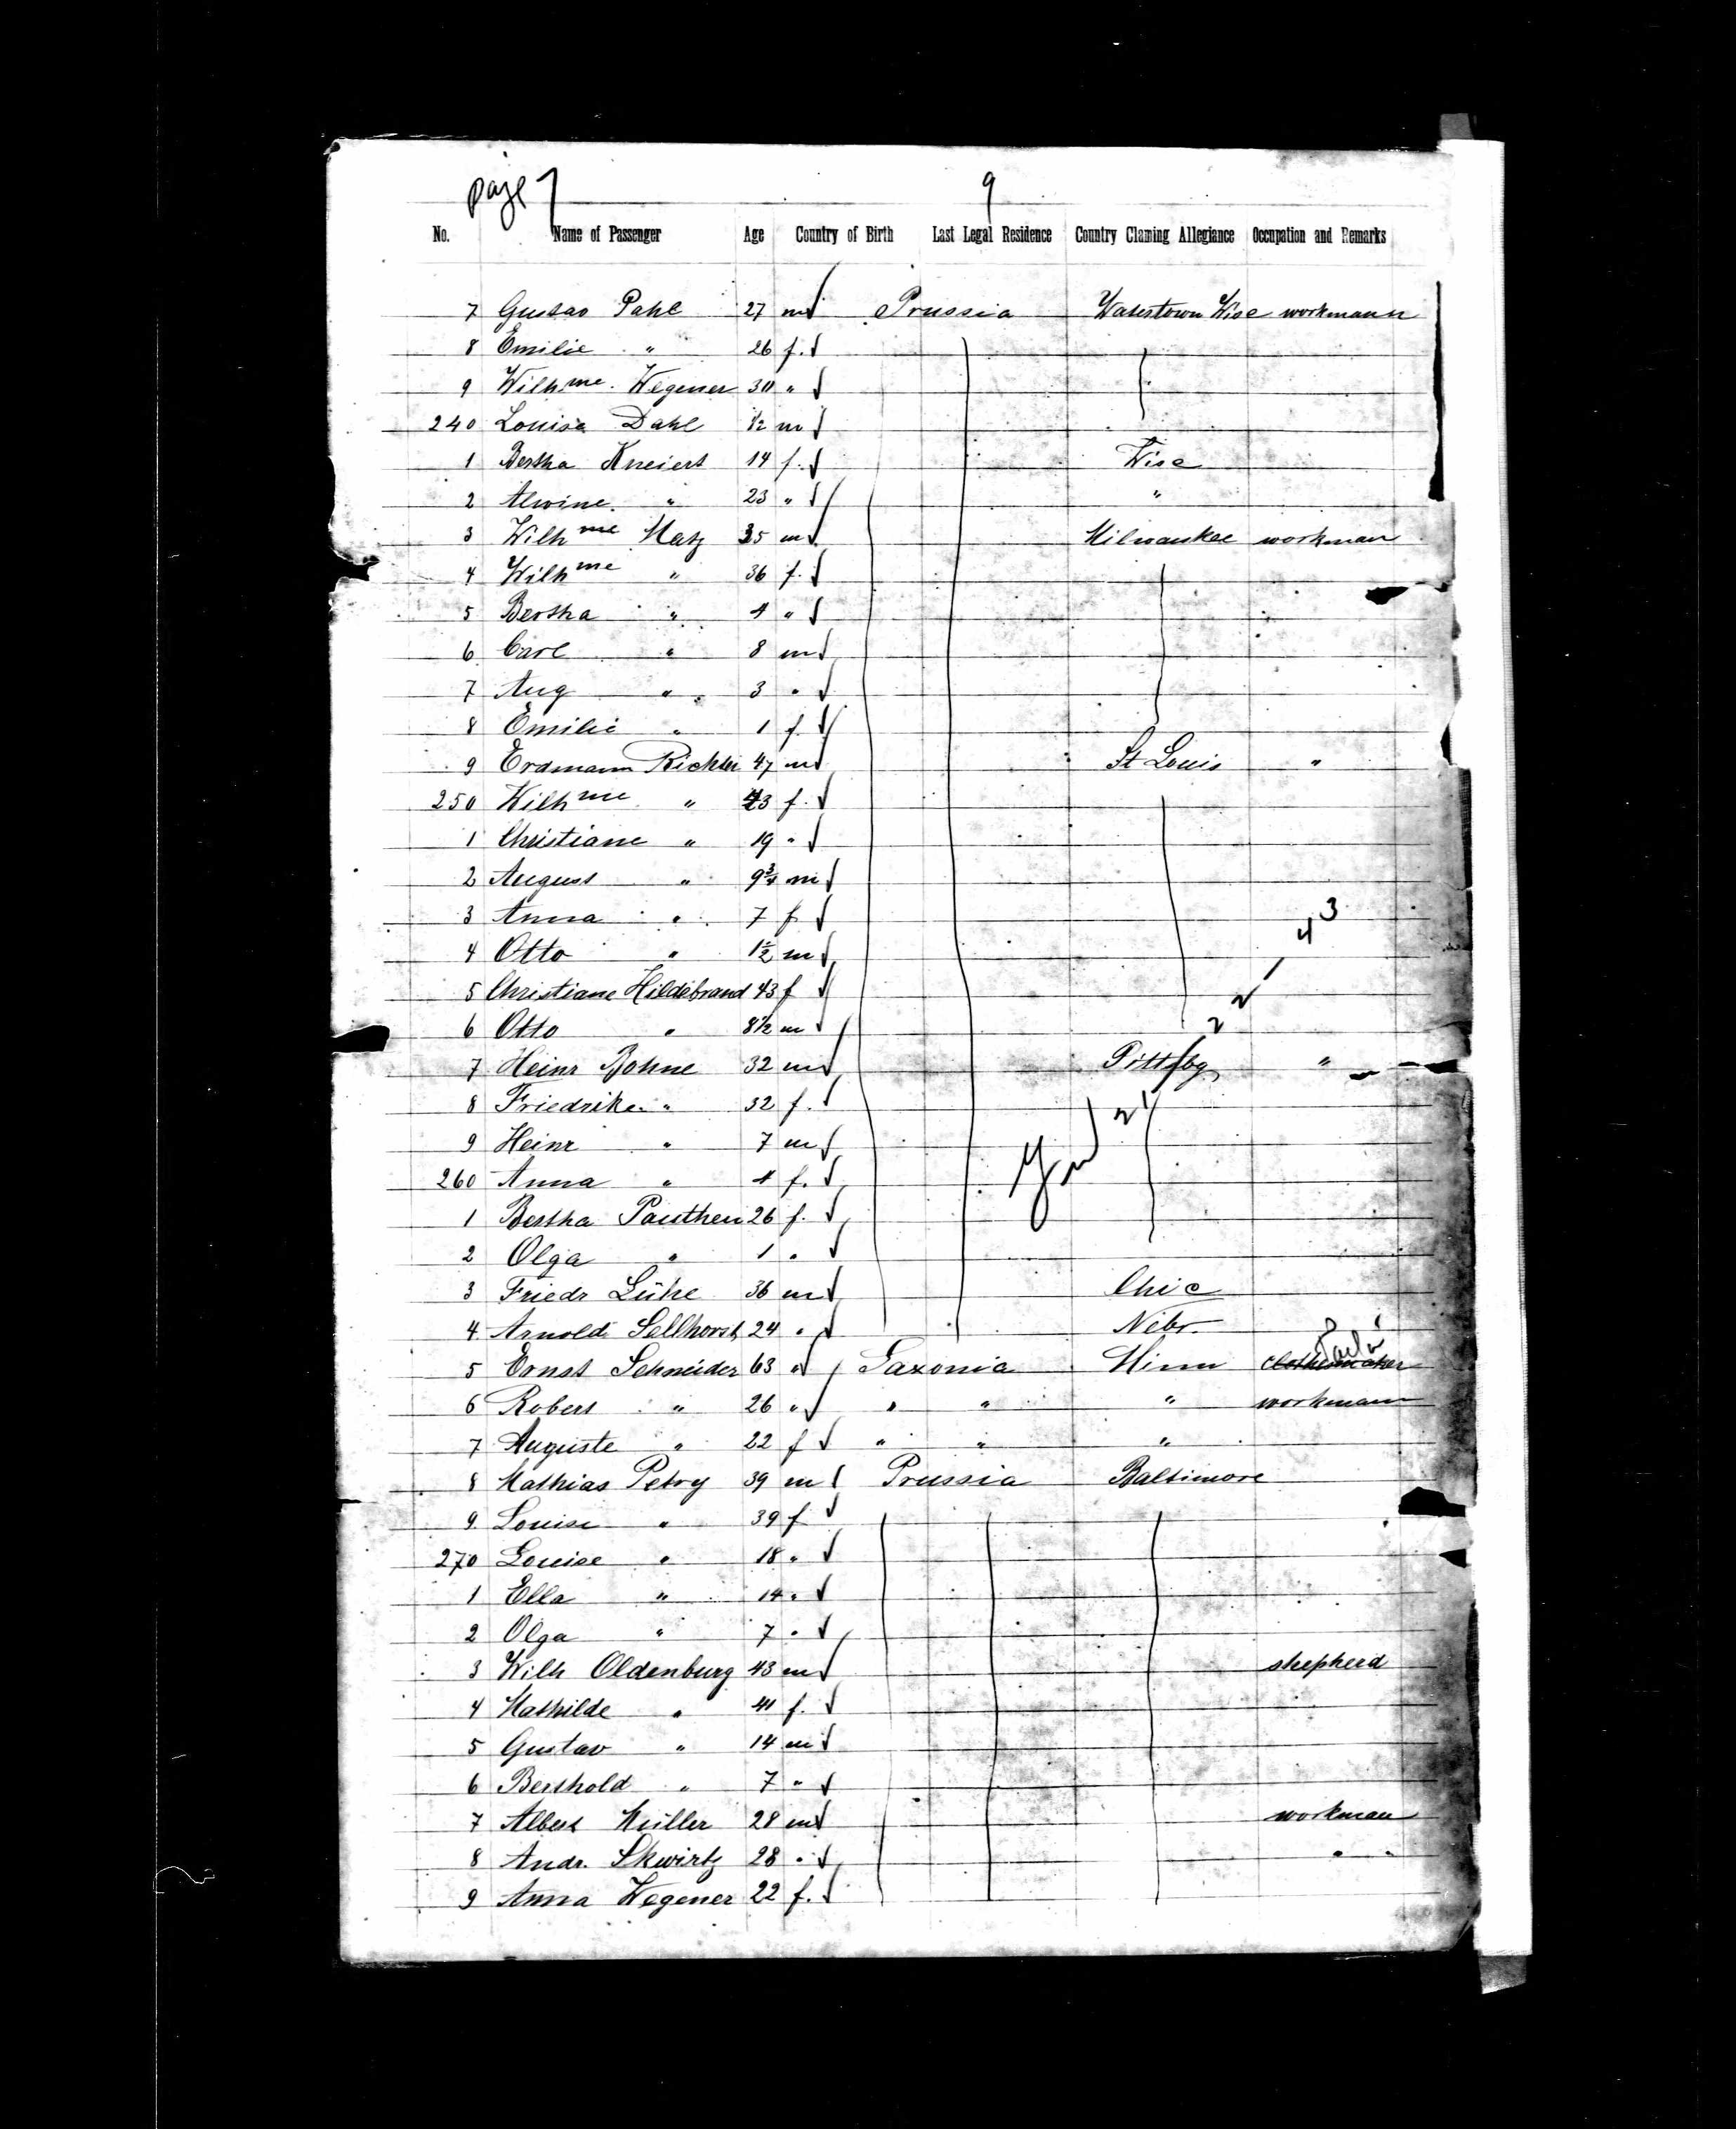 page 7 9
No. Name of Passenger Age Country of Birth Last Legal Residence Country Claming Allegiance Occupation and Remarks
7 Gustav Pahl 27 m Prussia Watertown Wisc workmann
8 Emilie " 26 f.
9 Wilhme. Wegener 30 "
240 Louise Dahl 1/2 m
1 Bertha Kneiert 14 f.
Wisc
2 Alwine " 23 " "
3 Wilhme Matz 35 m Milwaukee workman
4 Wilhme " 36 f.
5 Bertha " 4 "
6 Carl " 8 m
7 Aug " 3 "
8 Emilie " 1 f.
9 Erdmann Richter 47 m St Louis "
250 Wilhme " 43 f.
1 Christiane " 19 "
2 August " 9 3/4 m
3 Anna " 7 f
4 Otto " 1 1/2 m
5 Christiane Hildebrand 43 f
6 Otto " 8 1/2 m
7 Heinr Bohne 32 m Pittsbg. "
8 Friedrike " 32 f.
9 Heinr " 7 m
260 Anna " 4 f.
1 Bertha Panthen 26 f.
2 Olga " 1 "
3 Friedr Lühe 36 m Chic
4 Arnold Sellhorst 24 " Nebr.
5 Ernst Schneider 63 " Saxonia Minn clothesmaker
6 Robert " 26 " " " " workmann
7 Auguste " 22 f " " "
8 Mathias Petry 39 m Prussia Baltimore
9 Louise " 39 f
270 Louise " 18 "
1 Ella " 14 "
2 Olga " 7 "
3 Wilh Oldenburg 43 m shepherd
4 Mathilde " 41 f.
5 Gustav " 14 m
6 Berthold " 7 "
7 Albert Müller 28 m workman
8 Andr. Skwirtz 28 " "
9 Anna Wegener 22 f.